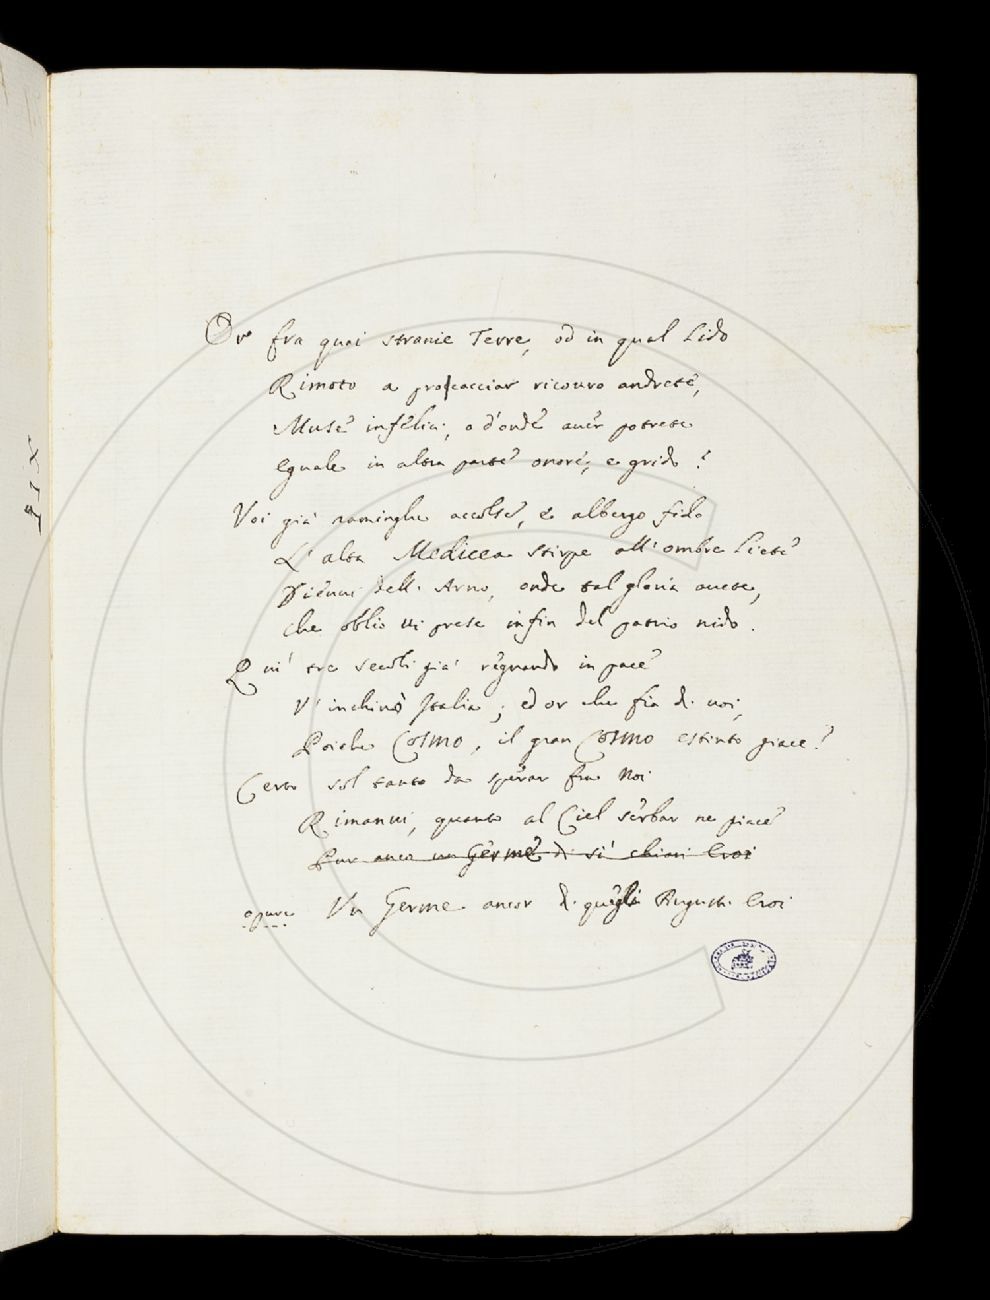 Or fra quai stranie Terre, od in qual Lido
Rimoto a procacciar ricouro andrete,
Muse infelici, o d'onde auer potrete
Eguale in altra parte onore, e grido?
Voi già raminghe accolse, e albergo fido
L'alta Medicea stirpe all'ombre liete
Vi denni dell'Arno, onde tal gloria auete,
Che oblio ui prese infin del patrio nido.
Qui tre secoli già regnando in pace
V'inchinò Italia; ed or che fia di uoi,
Poiche Cosmo, il gran Cosmo estinto giace?
Certo sol tanto da sperar fra noi
Rimanui, quanto al Ciel serbar ne piace
Pur anco un Germe di sì chiari Eroi
opure Un Germe ancor di quegli Augusti Eroi
XIX